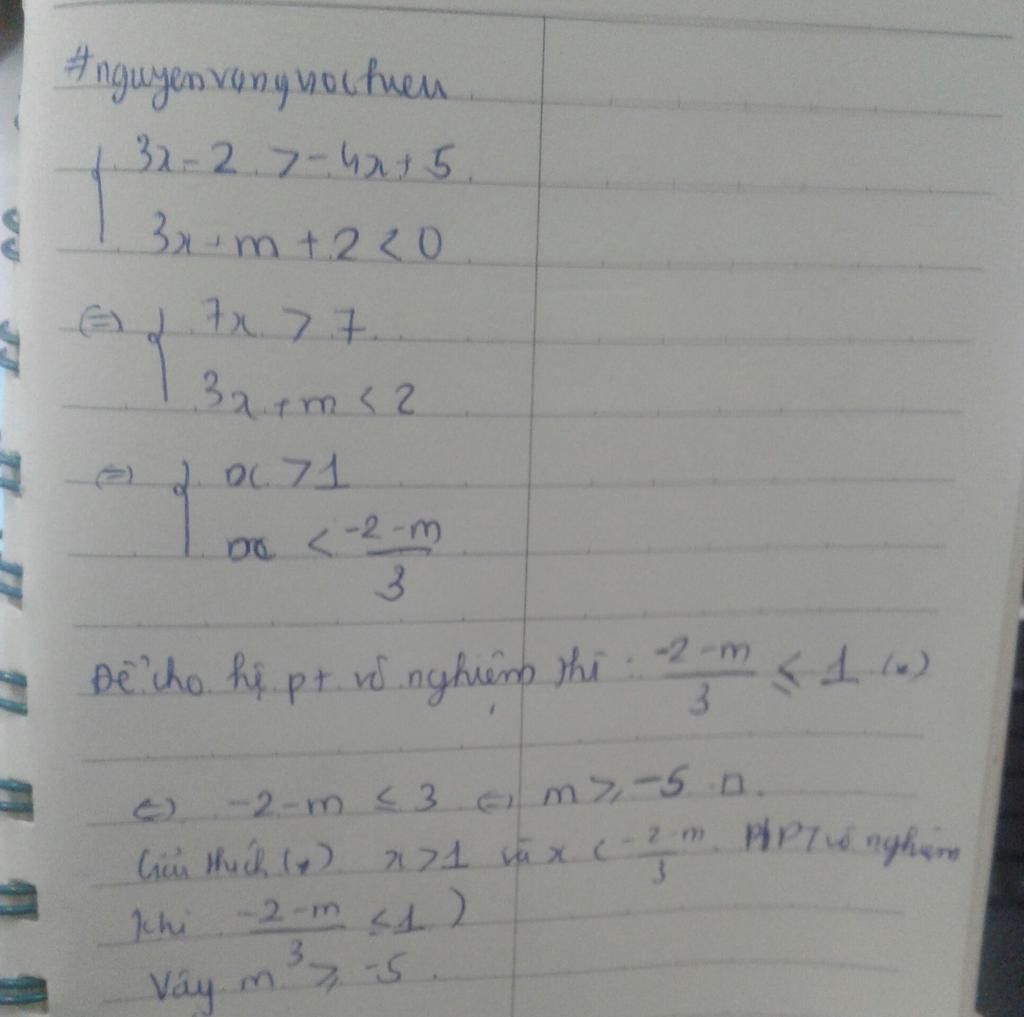 #nguyenvongvoctuen
3x - 2 > -4x + 5
3x + m + 2 < 0
⇔ 7x > 7
3x + m < 2
⇔ x > 1
x < \frac{-2-m}{3}
Để cho hệ pt vô nghiệm thì : \frac{-2-m}{3} ≤ 1 (*)
⇔ -2-m ≤ 3 ⇔ m ≥ -5 □.
Giải thích (*) x > 1 và x < \frac{-2-m}{3}. PT vô nghiệm
khi \frac{-2-m}{3} ≤ 1 )
Vây m ≥ -5.